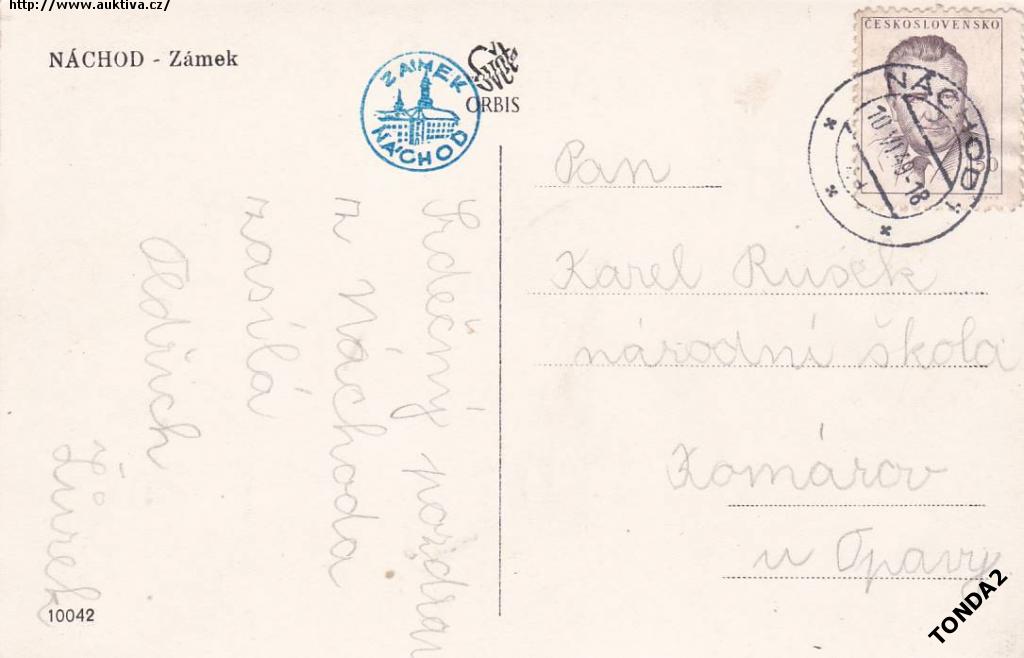 http://www.auktiva.cz/
NÁCHOD - Zámek
ZÁMEK
NÁCHOD
Svět
ORBIS
ČESKOSLOVENSKO
NÁCHOD 1
10.VII.49-18
Srdečný pozdrav
z Náchoda
zasílá
Oldřich
Žůrek
Pan
Karel Rusek
národní škola
Komárov
u Opavy
10042
TONDA2